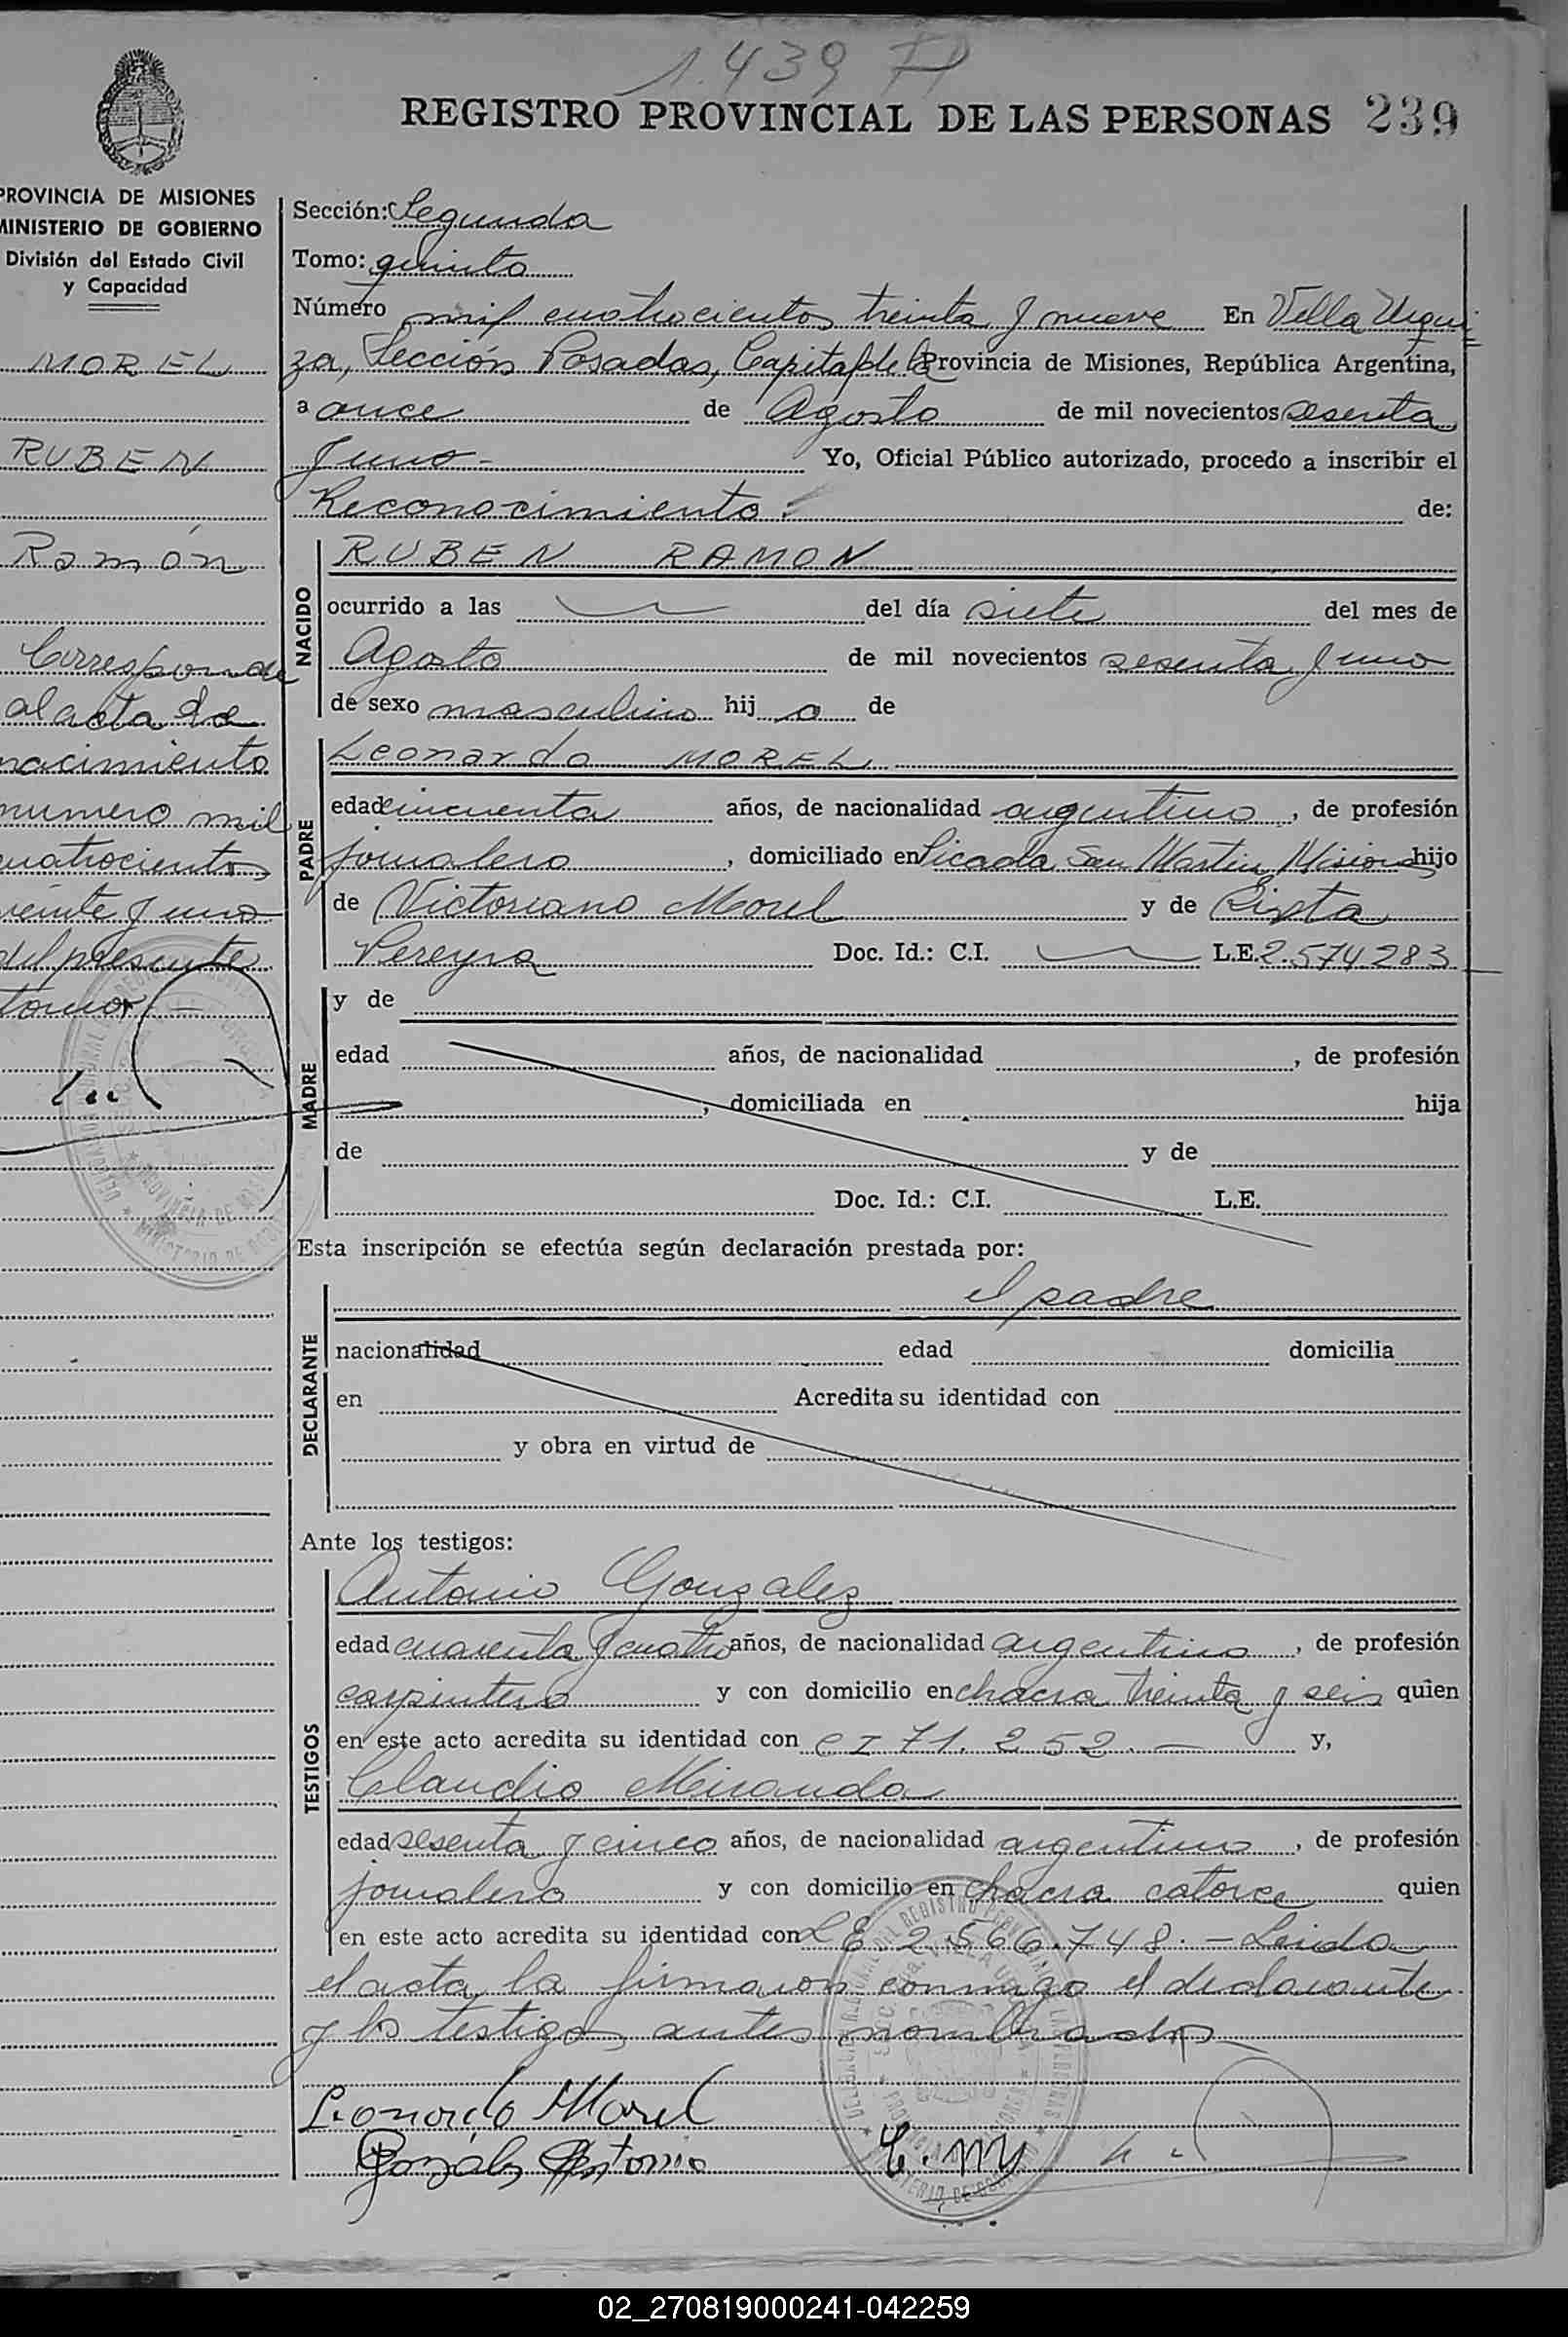 1.439
REGISTRO PROVINCIAL DE LAS PERSONAS 239
PROVINCIA DE MISIONES
MINISTERIO DE GOBIERNO
División del Estado Civil
y Capacidad
MOREL
RUBEN
Ramón
Corresponde
al acta de
nacimiento
numero mil
cuatrocientos
veinte y uno
del presente
tomo.-
Sección: Segunda
Tomo: quinto
Número mil cuatrocientos treinta y nueve En Villa Urqui
za, Sección Posadas, Capital de la Provincia de Misiones, República Argentina,
a once de Agosto de mil novecientos sesenta
y uno- Yo, Oficial Público autorizado, procedo a inscribir el
Reconocimiento: de:
NACIDO
RUBEN RAMON
ocurrido a las del día siete del mes de
Agosto de mil novecientos sesenta y uno
de sexo masculino hijo de
PADRE
Leonardo MOREL
edad cincuenta años, de nacionalidad argentino, de profesión
jornalero, domiciliado en Picada San Martin Misiones hijo
de Victoriano Morel y de Sixta
Pereyra Doc. Id.: C.I. L.E. 2.574.283
MADRE
y de
edad años, de nacionalidad , de profesión
, domiciliada en hija
de y de
Doc. Id.: C.I. L.E.
Esta inscripción se efectúa según declaración prestada por:
DECLARANTE
el padre
nacionalidad edad domicilia
en Acredita su identidad con
y obra en virtud de
Ante los testigos:
TESTIGOS
Antonio Gonzalez
edad cuarenta y cuatro años, de nacionalidad argentino, de profesión
carpintero y con domicilio en chacra treinta y seis quien
en este acto acredita su identidad con CI 71.252.- y,
Claudio Miranda
edad sesenta y cinco años, de nacionalidad argentino, de profesión
jornalero y con domicilio en chacra catorce quien
en este acto acredita su identidad con LE. 2.566.748.- Leida
el acta la firmaron conmigo el declarante
y los testigos antes nombrados
Leonardo Morel
González Antonio
02_270819000241-042259